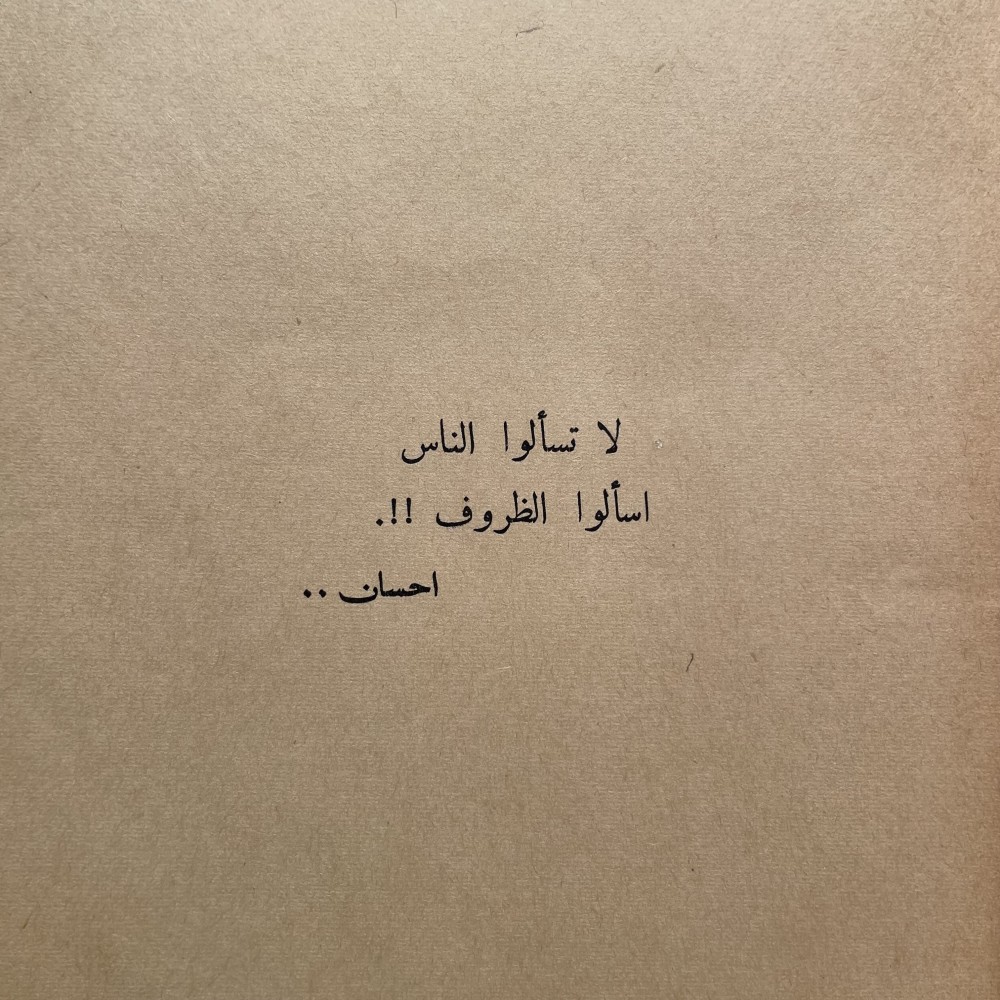 لا تسألوا الناس
اسألوا الظروف !!.
احسان ..